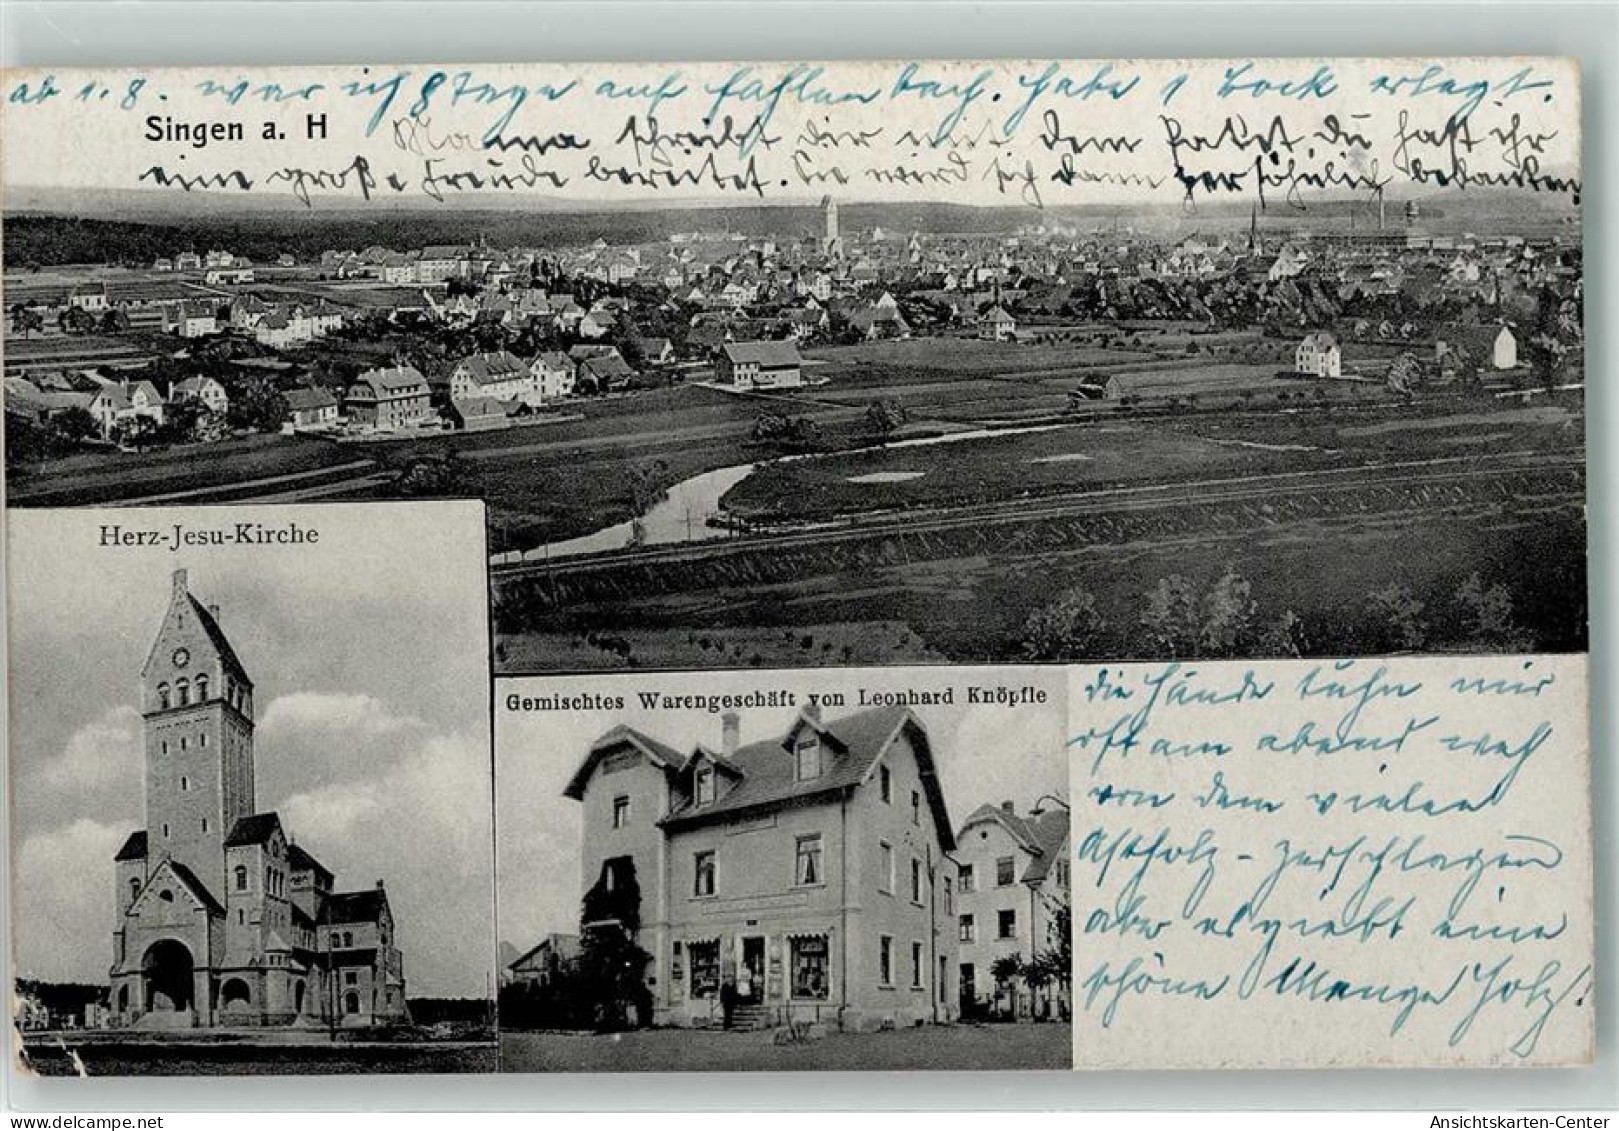 ab 1. 8. war ich 8 Tage auf Fahlenbach. Habe 1 Bock erlegt.
Singen a. H
Mama schreibt dir mit dem Paket, du hast ihr
eine große Freude bereitet. Sie wird sich dann persöhnlich bedanken
Herz-Jesu-Kirche
Gemischtes Warengeschäft von Leonhard Knöpfle
die Hände tuhn mir
oft am abend weh
von dem vielen
Astholz - zerschlagen
aber es giebt eine
schöne Menge Holz!
Ansichtskarten-Center